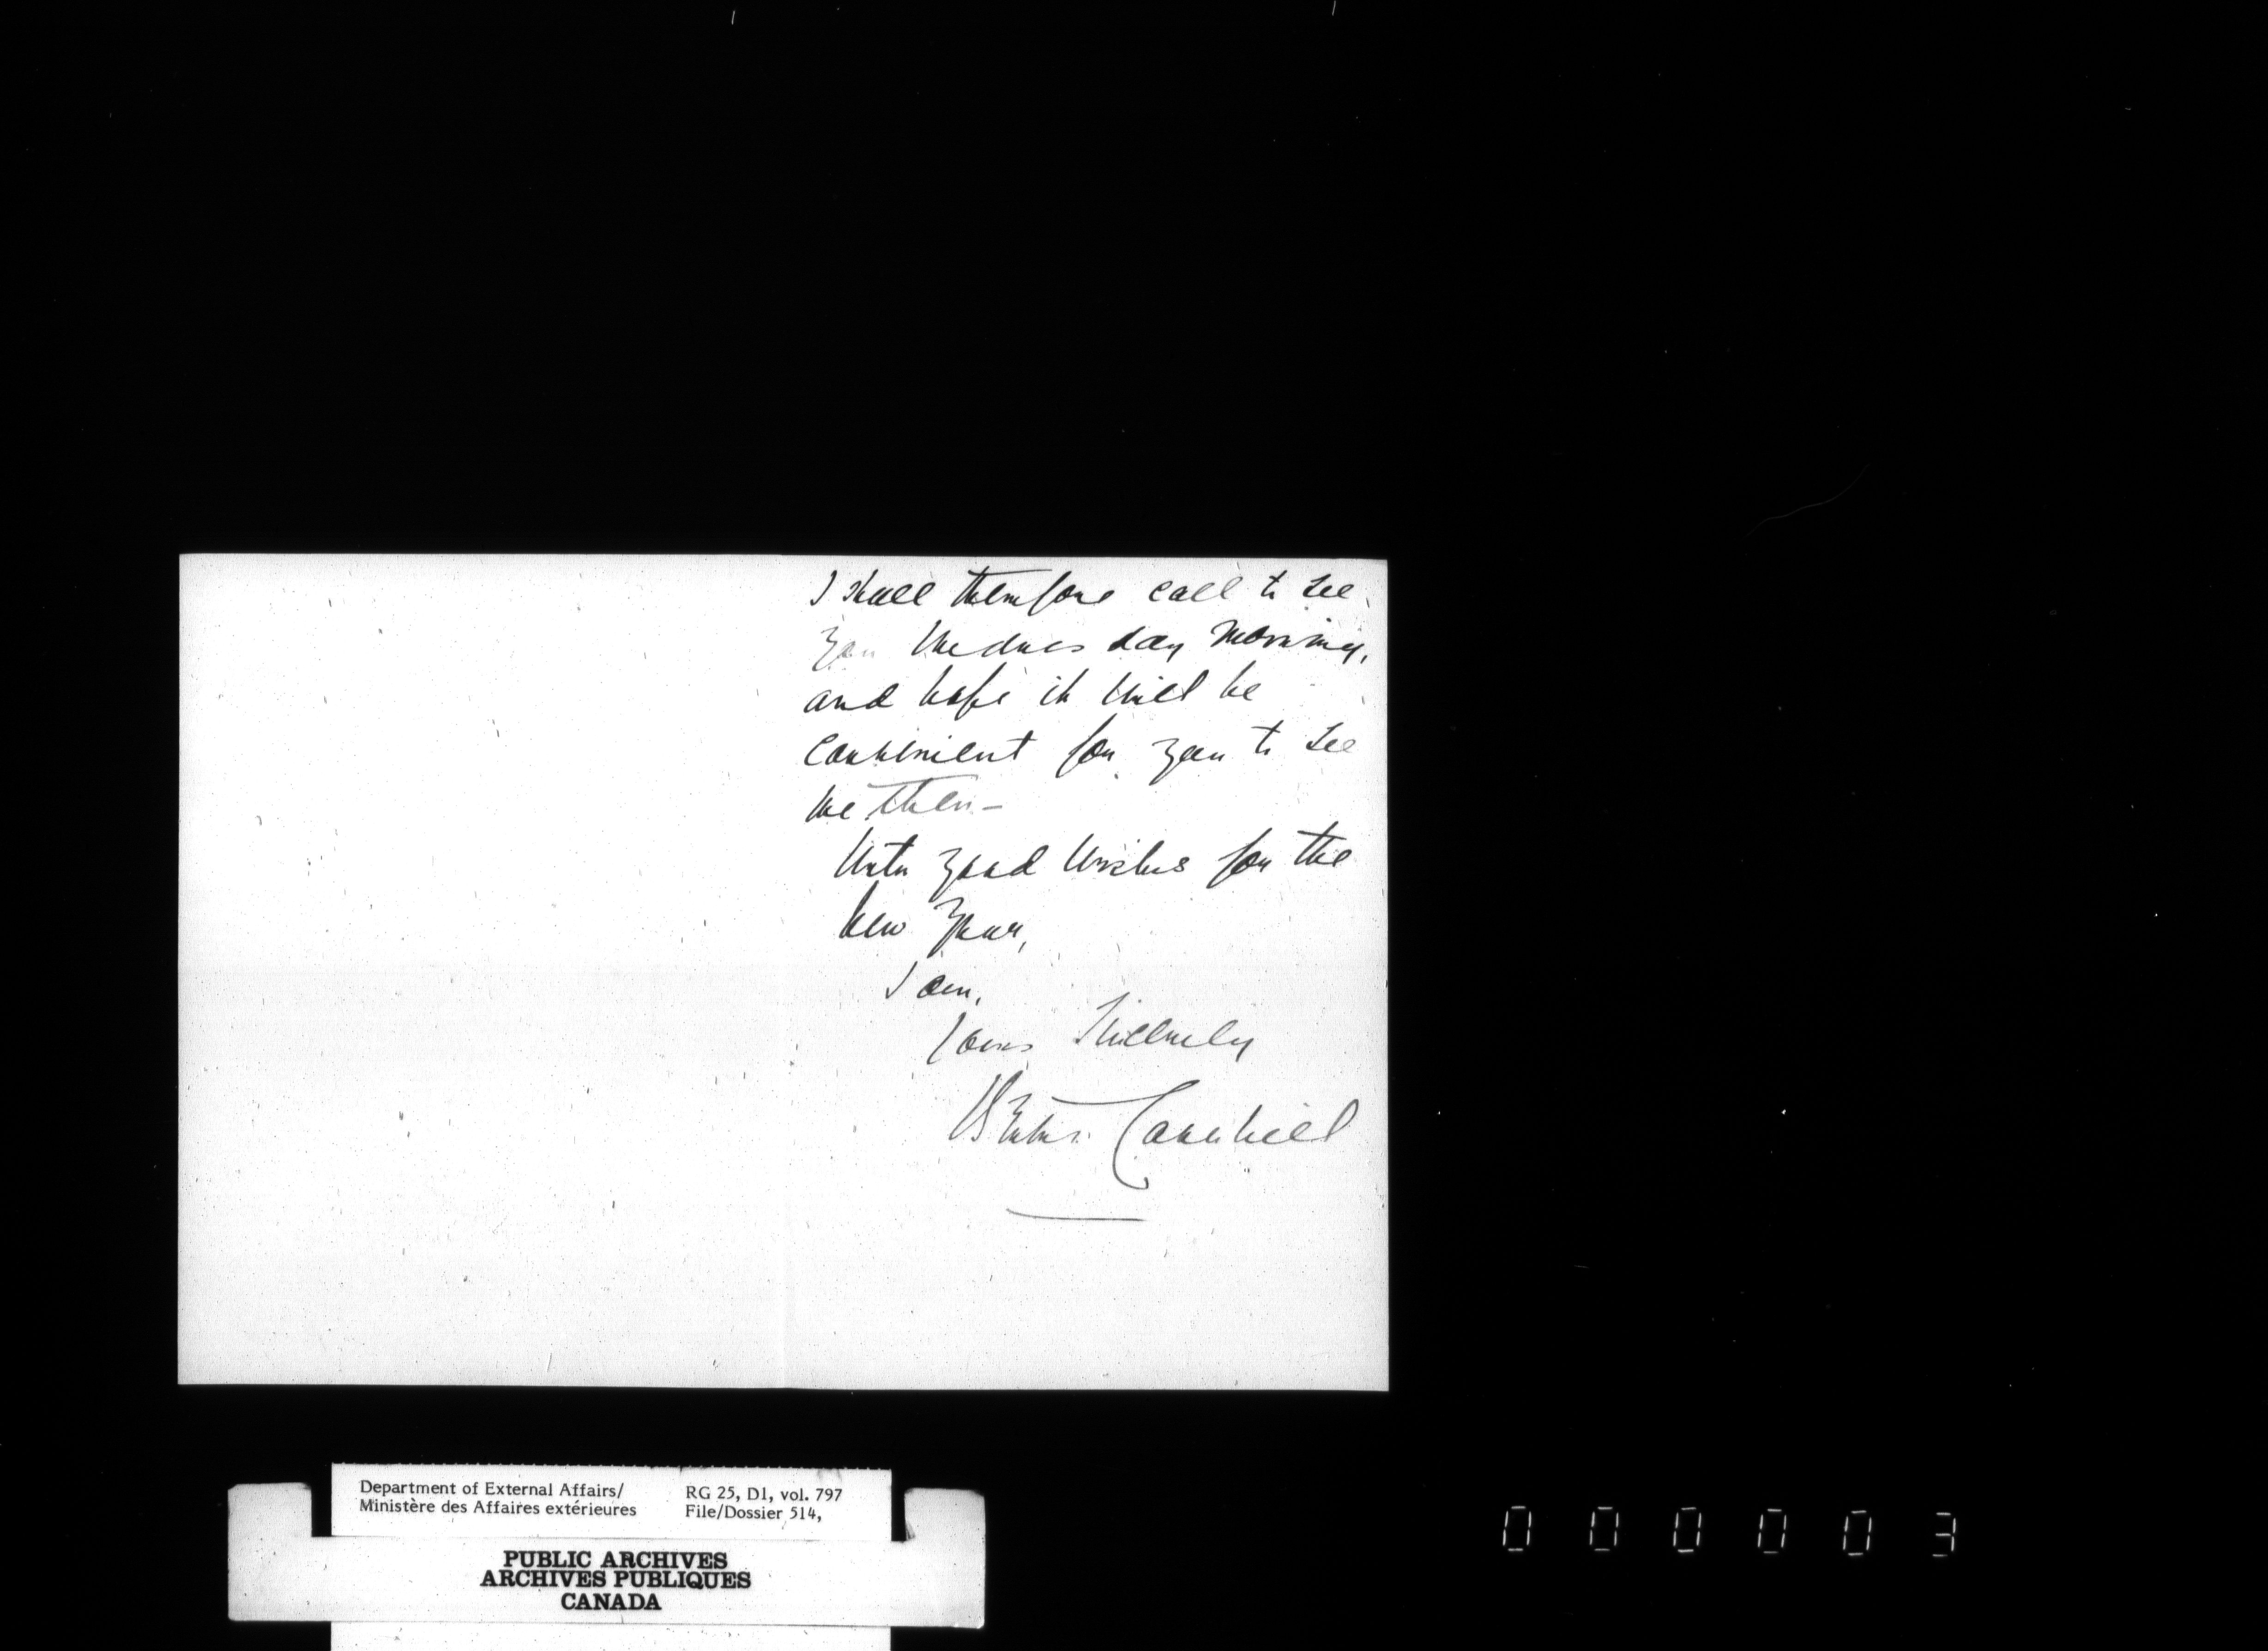 I shall therefore call to see
you Wednesday morning,
and hope it will be
convenient for you to see
me then —
With good wishes for the
new year,
I am,
Yours Sincerely
Department of External Affairs/
Ministère des Affaires extérieures
RG 25, D1, vol. 797
File/Dossier 514,
PUBLIC ARCHIVES
ARCHIVES PUBLIQUES
CANADA
000003